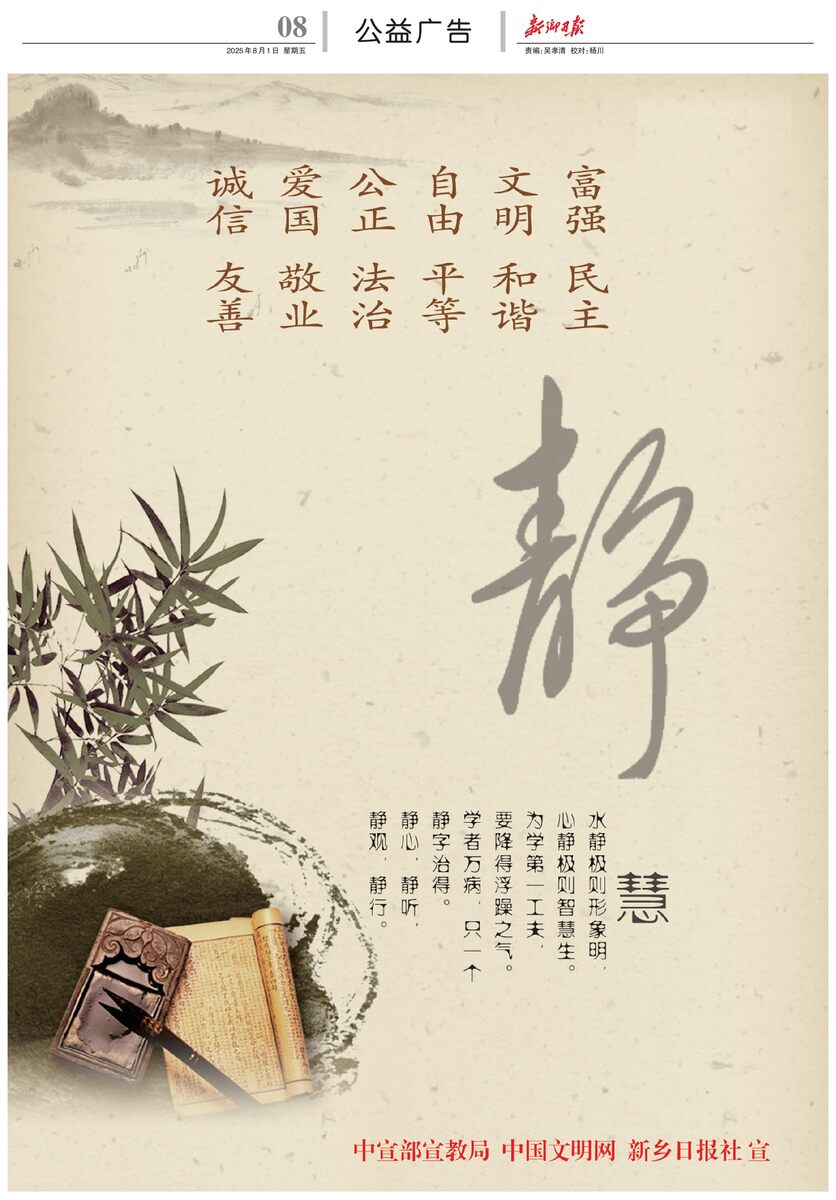 08
2025年8月1日 星期五
公益广告
新乡日报
责编:吴孝清 校对:杨川
富强 民主
文明 和谐
自由 平等
公正 法治
爱国 敬业
诚信 友善
静
慧
水静极则形象明,
心静极则智慧生。
为学第一工夫,
要降得浮躁之气。
学者万病,只一个
静字治得。
静心,静听,
静观,静行。
中宣部宣教局 中国文明网 新乡日报社 宣